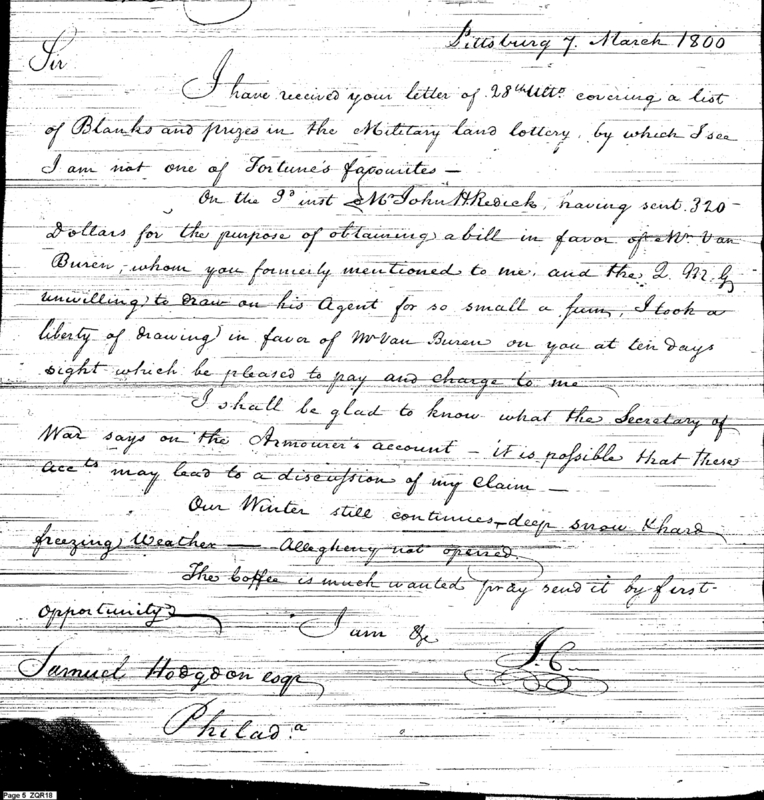 Pittsburg 7. March 1800
Sir
I have received your letter of 28th Ulto. covering a list
of Blanks and prizes in the Military land lottery, by which I see
I am not one of Fortune's favourites —
On the 3d inst Mr John H Redick, having sent 320
Dollars for the purpose of obtaining a bill in favor of Mr Van
Buren, whom you formerly mentioned to me, and the Q. M. G
unwilling to draw on his Agent for so small a sum, I took a
liberty of drawing in favor of Mr Van Buren on you at ten days
sight which be pleased to pay and charge to me
I shall be glad to know what the Secretary of
War says on the Armourer's account — it is possible that these
accts may lead to a discussion of my Claim —
Our Winter still continues, deep snow & hard
freezing Weather — Allegheny not opened.
The Coffee is much wanted pray send it by first
opportunity
I am &c
J. C
Samuel Hodgdon esqr
Philad.a
Page 5 ZQR18